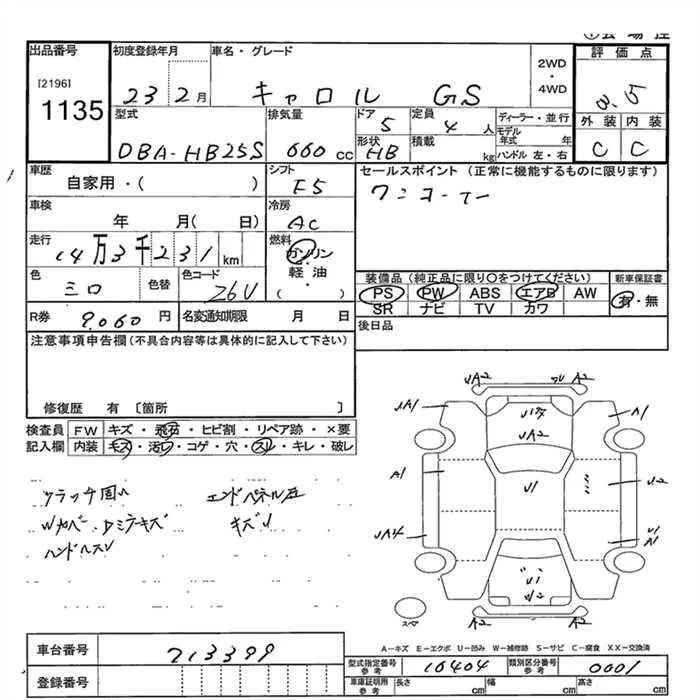 出品番号 初度登録年月 車名・グレード 2WD ・ 4WD 評価点
[2196]
1135
23 2月 キャロル GS 3.5
型式 排気量 ドア 定員 ディーラー・並行 外装 内装
DBA-HB25S 660cc 5 4人 モデル年式 年 C C
形状 積載
HB kg ハンドル 左・右
車歴 シフト セールスポイント (正常に機能するものに限ります)
自家用・( ) F5 ワンオーナー
車検 冷房
年 月( 日) AC
走行 燃料
14万3千231km ガソリン・軽油・( )
色 色替 色コード 装備品(純正品に限り○をつけてください) 新車保証書
26U PS PW ABS エアB AW 有・無
SR ナビ TV カワ
R券 9,060円 名変通知期限 月 日 後日品
注意事項申告欄(不具合内容等は具体的に記入して下さい)
修復歴 有〔箇所 〕
検査員 FW キズ・飛石・ヒビ割・リペア跡・×要
記入欄 内装 キズ・汚レ・コゲ・穴・スレ・キレ・破レ
クラッチ固い エンドパネル左
キズU
ハンドルスレ
UA2 A2
UA1 A1
UA2
A1 U1 U2
U1
A1
U1
A2 A2
スペア
A-キズ E-エクボ U-凹み W-補修跡 S-サビ C-腐食 XX-交換済
車台番号 213399
登録番号
型式指定番号参考 16404 類別区分番号参考 0001
車庫証明用参考 長さ cm 幅 cm 高さ cm